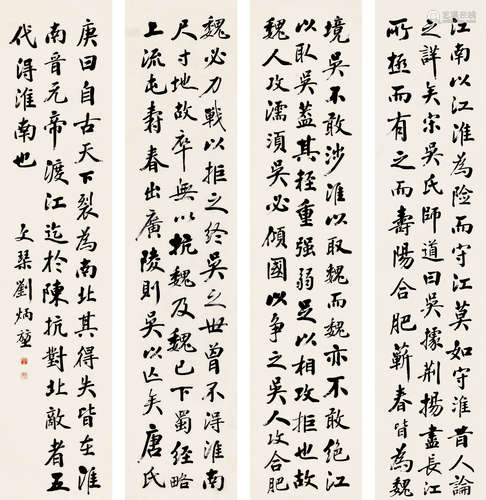 江南以江淮為险而守江莫如守淮昔人論
之詳矣宗吳氏師道曰吳據荆揚盡長江
所極而有之而壽陽合肥蕲春皆為魏
境吳不敢涉淮以取魏而魏亦不敢绝江
以取吳蓋其輕重强弱足以相攻拒也故
魏人攻濡須吳必傾國以争之吳人攻合肥
魏必力戰以拒之终吳之世曾不得淮南
尺寸地故卒無以抗魏及魏已下蜀经略
上流屯壽春出廣陵則吳以亡矣唐氏
庚曰自古天下裂為南北其得失皆在淮
南晋元帝渡江迄於陳抗對北敵者五
代得淮南也
文琹劉炳堃